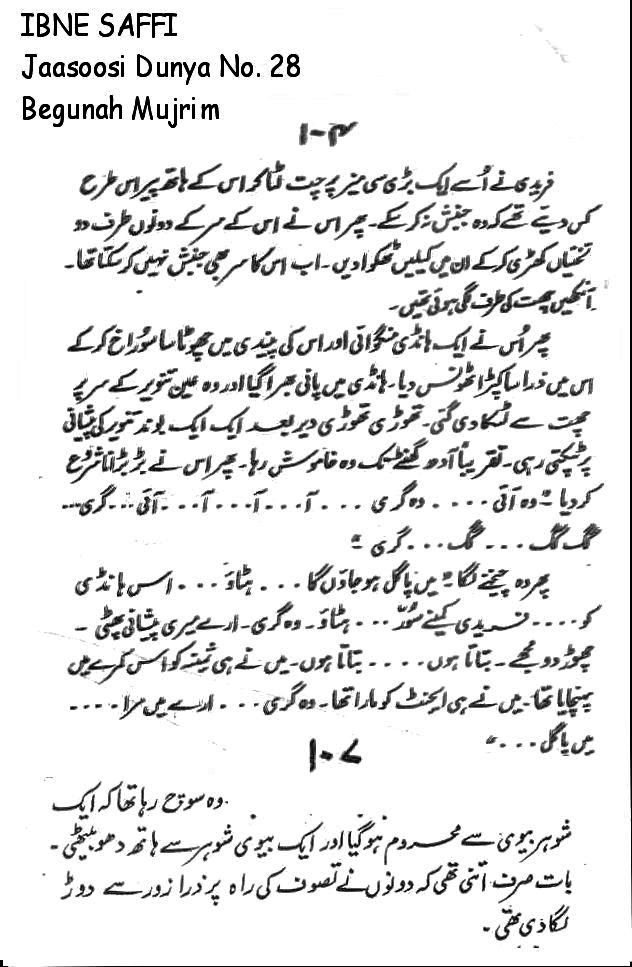 IBNE SAFFI
Jaasoosi Dunya No. 28
Begunah Mujrim
۱۰۴
فریدی نے اُسے ایک بڑی سی میز پر چت لٹا کر اس کے ہاتھ پیر اس طرح
کس دیئے تھے کہ وہ جنبش نہ کر سکے۔ پھر اس نے اس کے سر کے دونوں طرف دو
تختیاں کھڑی کر کے ان میں کیلیں ٹھکوا دیں۔ اب اس کا سر بھی جنبش نہیں کر سکتا تھا۔
آنکھیں چھت کی طرف لگی ہوئی تھیں۔
پھر اُس نے ایک ہانڈی منگوائی اور اس کی پیندی میں چھوٹا سا سوراخ کر کے
اس میں ذرا سا کپڑا ٹھونس دیا۔ ہانڈی میں پانی بھرا گیا اور وہ عین تنویر کے سر پر
چھت سے لٹکا دی گئی۔ تھوڑی تھوڑی دیر بعد ایک ایک بوند تنویر کی پیشانی
پر ٹپکتی رہی۔ تقریباً آدھ گھنٹے تک وہ خاموش رہا۔ پھر اس نے بڑبڑانا شروع
کر دیا "وہ آئی . . . . . وہ گری . . . آ . . . آ . . . آ . . . آئی . . . گری . . .
گگ گگ . . . گگ . . . گری"
پھر وہ چیخنے لگا "میں پاگل ہو جاؤں گا . . . ہٹاؤ . . . اس ہانڈی
کو . . . . فریدی کمینے سُوَر . . . ہٹاؤ۔ وہ گری۔ ارے میری پیشانی پھٹی۔
چھوڑ دو مجھے۔ بتاتا ہوں . . . . بتاتا ہوں۔ میں نے ہی ثمینہ کو اس کمرے میں
پہنچایا تھا۔ میں نے ہی ایجنٹ کو مارا تھا۔ وہ گری . . . ارے میں مرا . . . .
میں پاگل . . ."
۱۰۷
وہ سوچ رہا تھا کہ ایک
شوہر بیوی سے محروم ہو گیا اور ایک بیوی شوہر سے ہاتھ دھو بیٹھی۔
بات صرف اتنی تھی کہ دونوں نے تصوف کی راہ پر ذرا زور سے دوڑ
لگا دی تھی۔